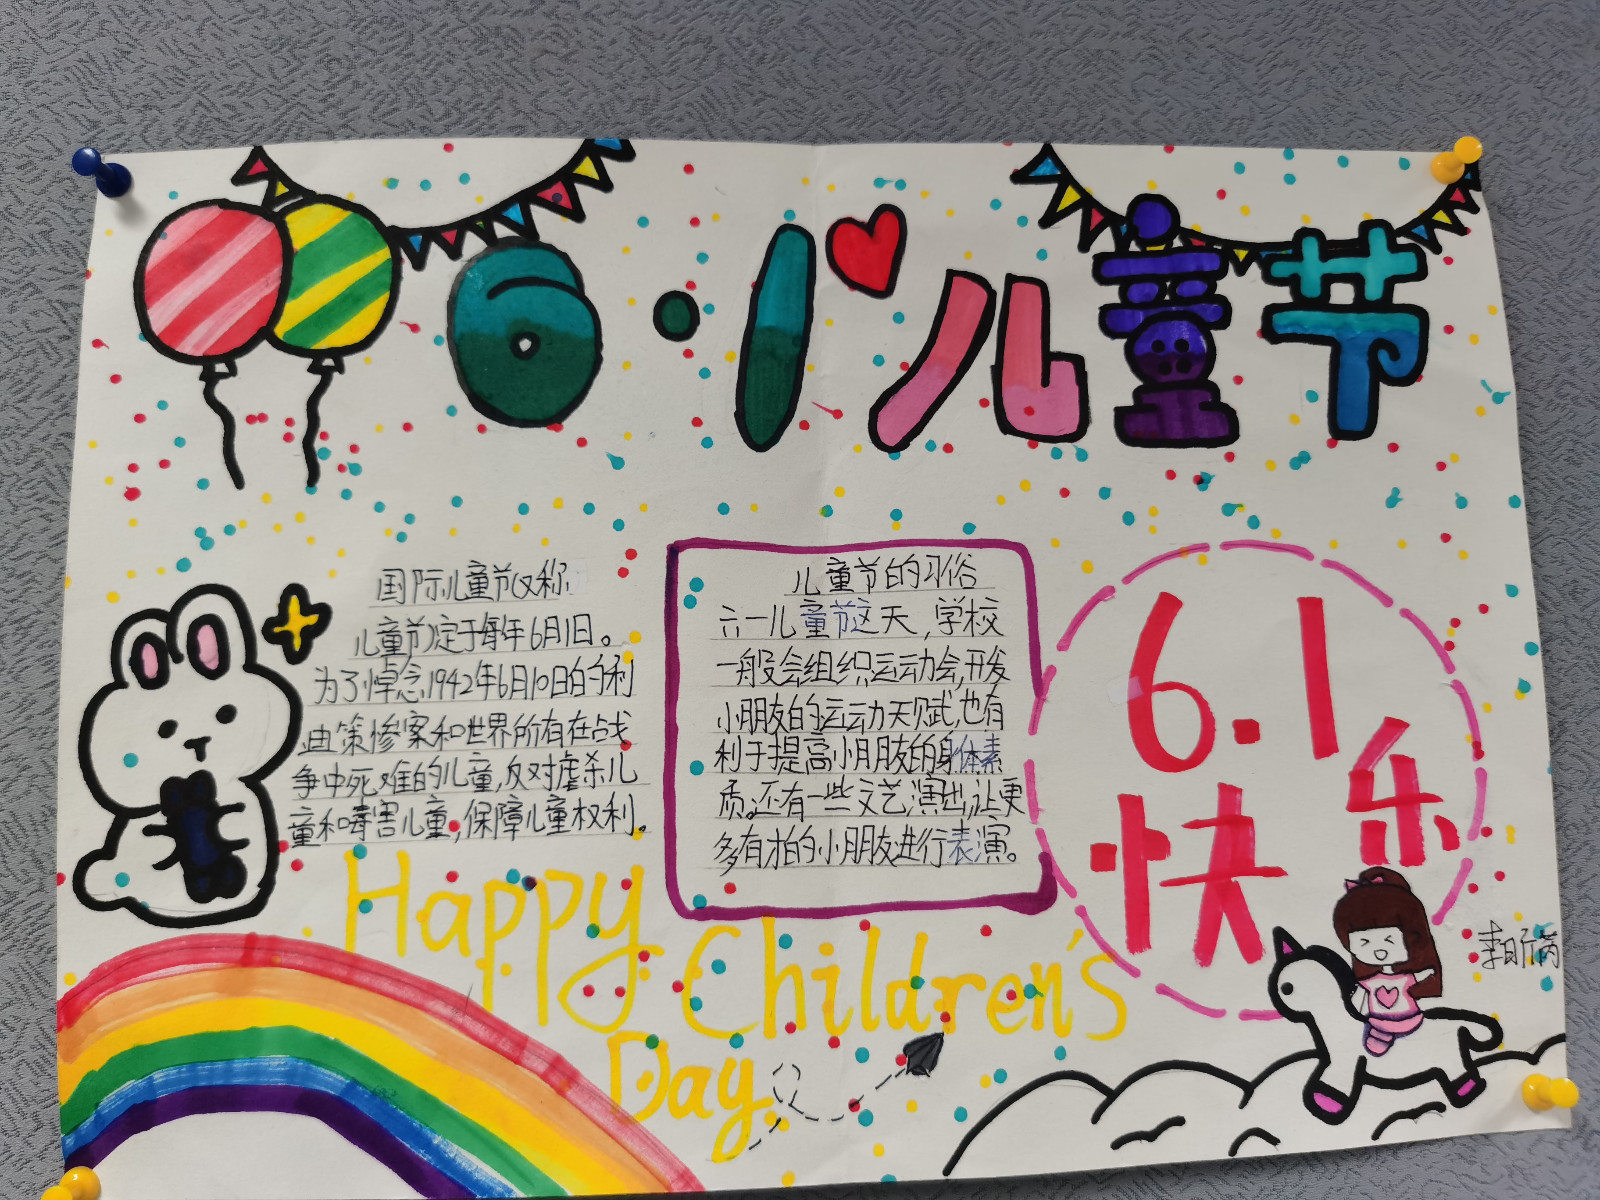 6·1儿童节
国际儿童节(又称
儿童节)定于每年6月1日。
为了悼念1942年6月10日的利
迪策惨案和世界所有在战
争中死难的儿童,反对虐杀儿
童和毒害儿童,保障儿童权利。
儿童节的习俗
六一儿童节这天,学校
一般会组织运动会,开发
小朋友的运动天赋,也有
利于提高小朋友的身体素
质。还有一些文艺演出,让更
多有才的小朋友进行表演。
6.1
快乐
Happy
Children's
Day